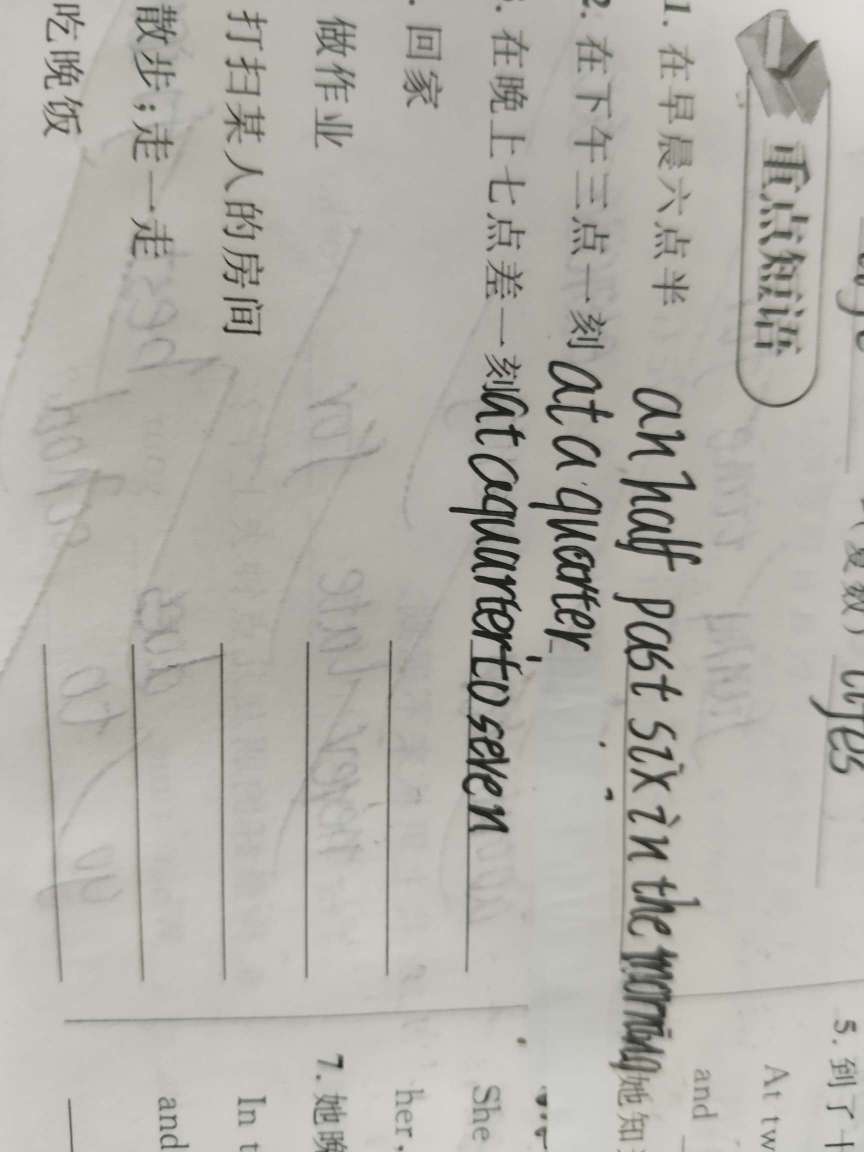 (复数) lifes
重点短语
1. 在早晨六点半 an half past six in the morning
2. 在下午三点一刻 at a quarter
. 在晚上七点差一刻 at a quarter to seven
. 回家
做作业
打扫某人的房间
散步;走一走
吃晚饭
5. 到了十
At tw
and
她知
She
her,
7. 她晚
In t
and